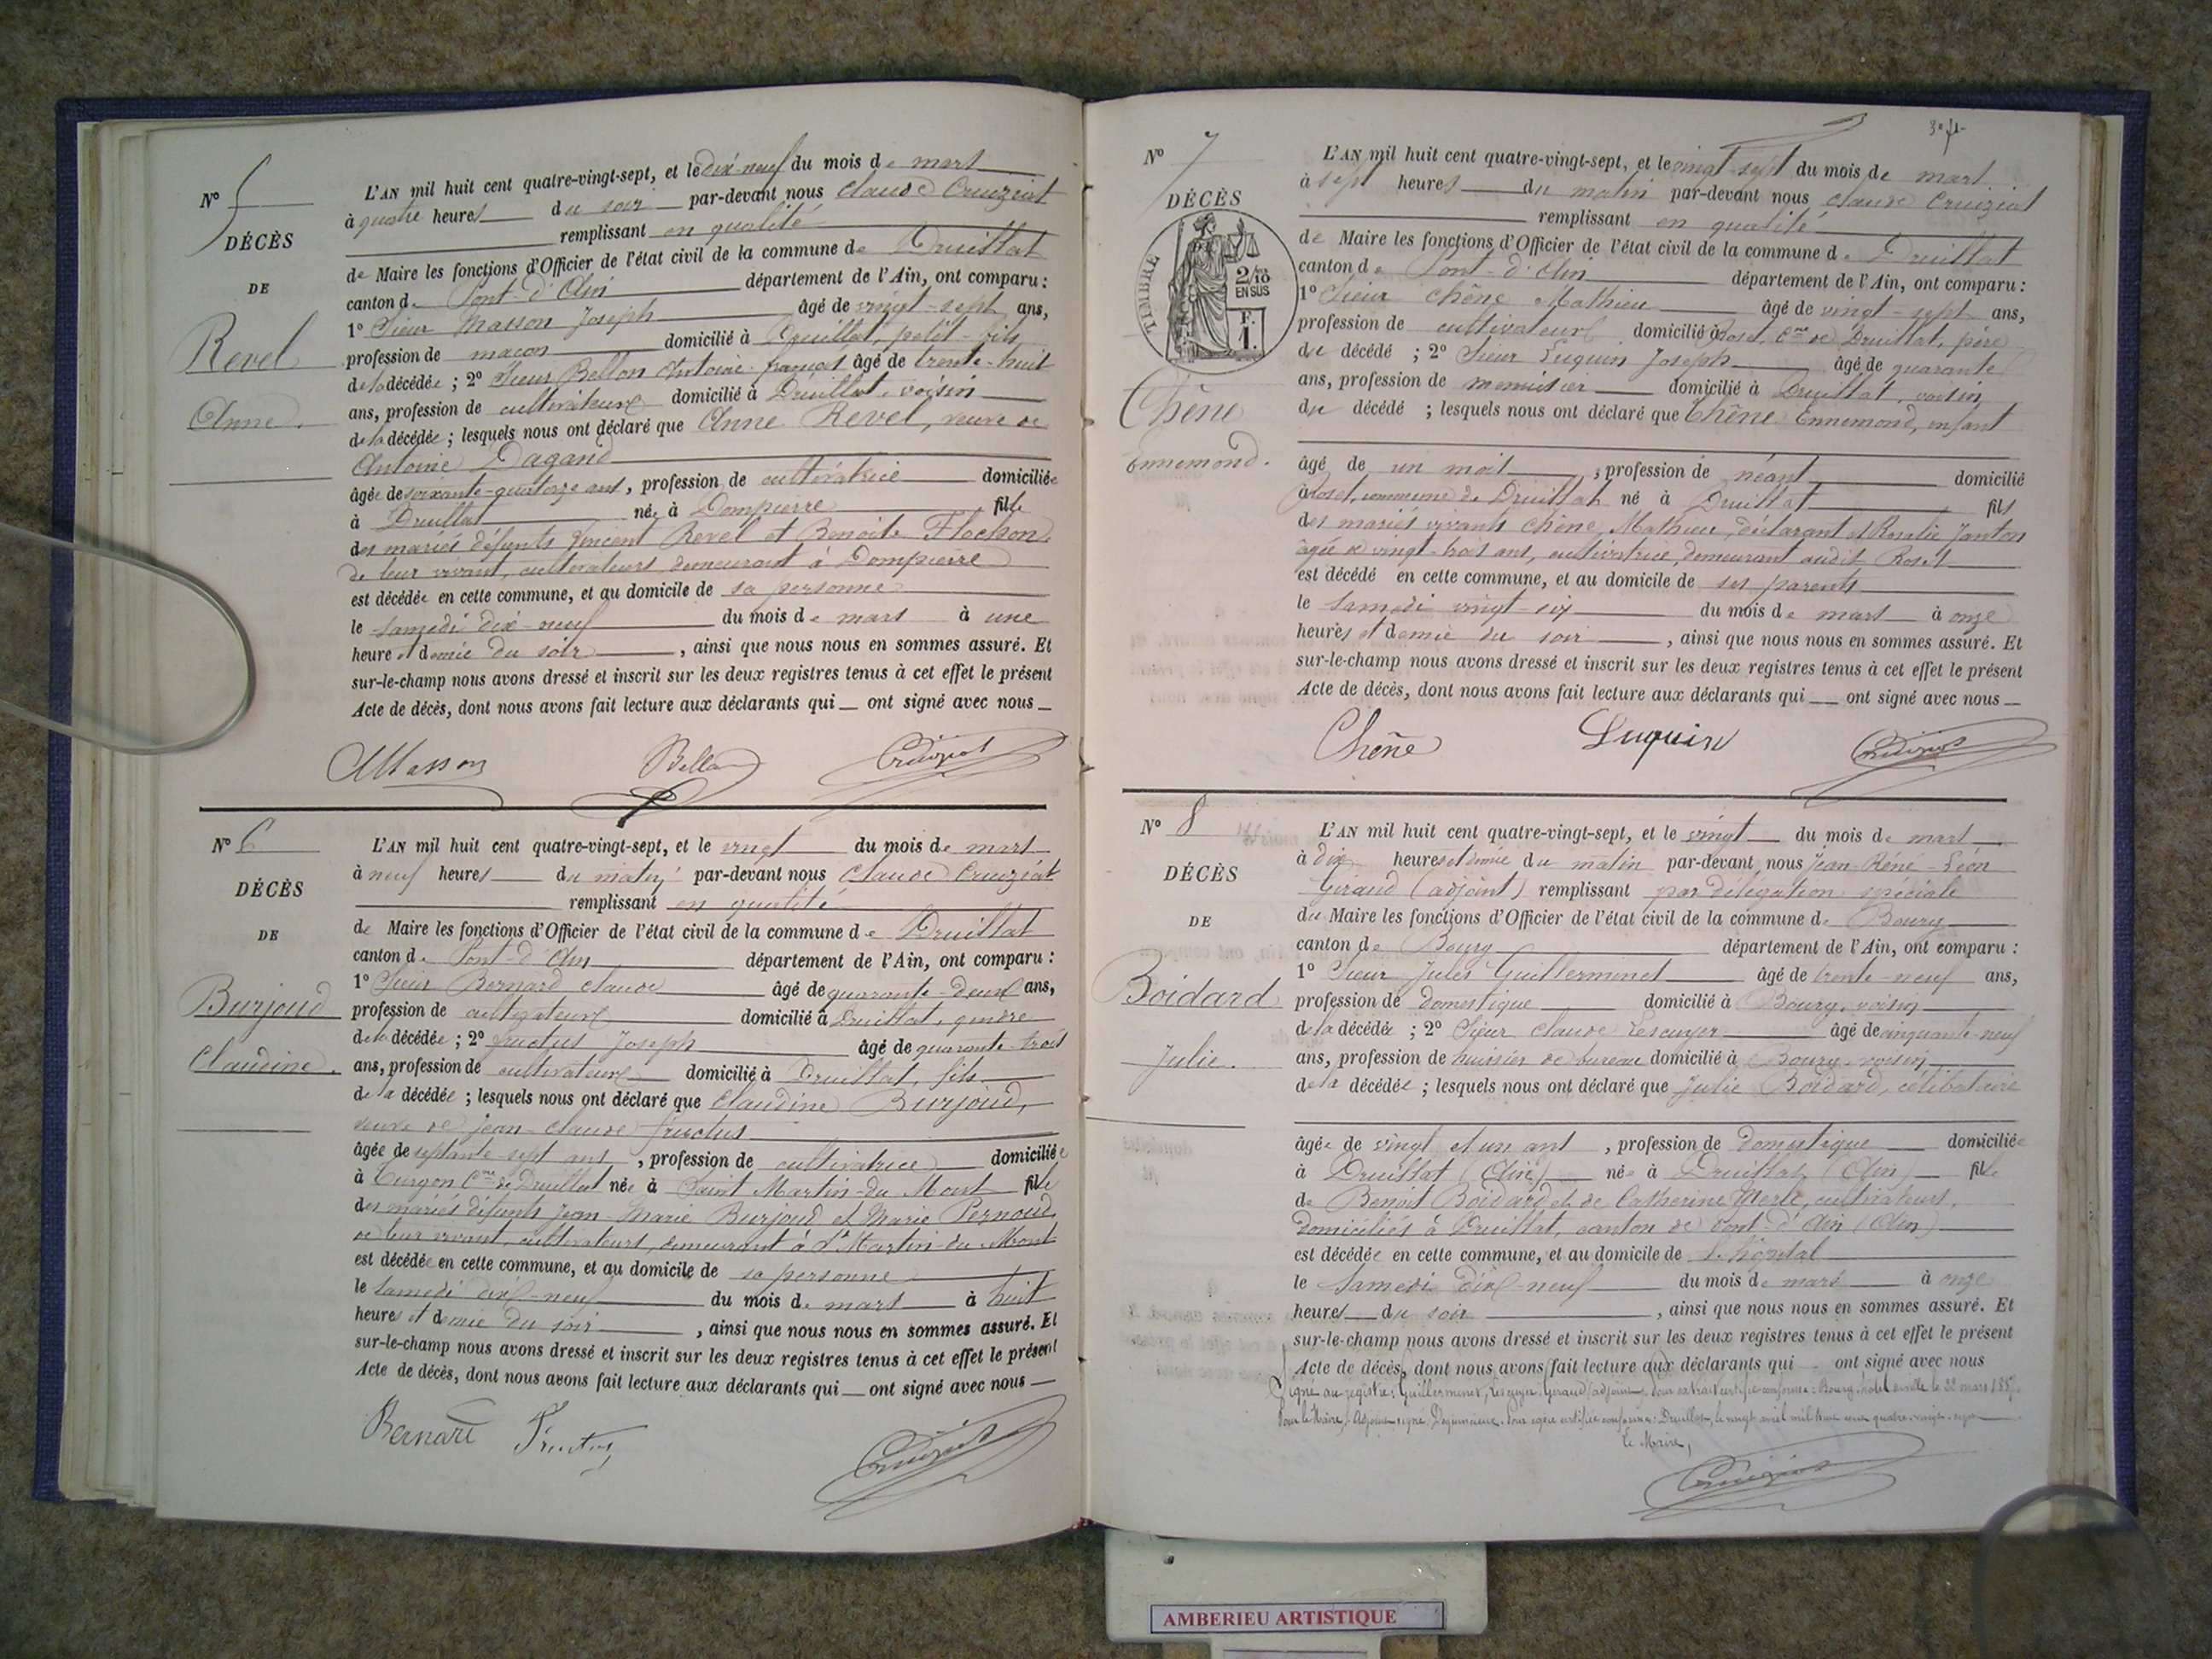 N° 5
DÉCÈS
DE
Revel
Anne.
L'AN mil huit cent quatre-vingt-sept, et le dix-neuf du mois de mars
à quatre heures du soir par-devant nous Claude Cruiziat
remplissant en qualité
de Maire les fonctions d'Officier de l'état civil de la commune de Druillat
canton de Pont-d'Ain département de l'Ain, ont comparu :
1° Sieur Masson Joseph âgé de vingt-sept ans,
profession de maçon domicilié à Druillat, petit-fils
de la décédée ; 2° Sieur Bellon Antoine françois âgé de trente-huit
ans, profession de cultivateur domicilié à Druillat, voisin
de la décédée ; lesquels nous ont déclaré que Anne Revel, veuve de
Antoine Dagand
âgée de soixante-quatorze ans, profession de cultivatrice domiciliée
à Druillat née à Dompierre fille
des mariés défunts Vincent Revel et Benoite Flochon,
de leur vivant, cultivateurs, demeurant à Dompierre
est décédée en cette commune, et au domicile de sa personne
le samedi dix-neuf du mois de mars à une
heure et demie du soir, ainsi que nous nous en sommes assuré. Et
sur-le-champ nous avons dressé et inscrit sur les deux registres tenus à cet effet le présent
Acte de décès, dont nous avons fait lecture aux déclarants qui ont signé avec nous
Masson Bellon Cruiziat
N° 6
DÉCÈS
DE
Burjoud
Claudine.
L'AN mil huit cent quatre-vingt-sept, et le vingt du mois de mars
à neuf heures du matin par-devant nous Claude Cruiziat
remplissant en qualité
de Maire les fonctions d'Officier de l'état civil de la commune de Druillat
canton de Pont-d'Ain département de l'Ain, ont comparu :
1° Sieur Bernard Claude âgé de quarante-deux ans,
profession de cultivateur domicilié à Druillat, gendre
de la décédée ; 2° fructus Joseph âgé de quarante-trois
ans, profession de cultivateur domicilié à Druillat, fils
de la décédée ; lesquels nous ont déclaré que Claudine Burjoud,
veuve de Jean-Claude fructus
âgée de septante-sept ans, profession de cultivatrice domiciliée
à Turgon Cne de Druillat née à Saint Martin-du Mont fille
des mariés défunts Jean-Marie Burjoud et Marie Pernoud,
de leur vivant, cultivateurs, demeurant à St Martin-du-Mont
est décédée en cette commune, et au domicile de sa personne
le samedi dix-neuf du mois de mars à huit
heures et demie du soir, ainsi que nous nous en sommes assuré. Et
sur-le-champ nous avons dressé et inscrit sur les deux registres tenus à cet effet le présent
Acte de décès, dont nous avons fait lecture aux déclarants qui ont signé avec nous
Bernard Fructus Cruiziat
N° 7
DÉCÈS
TIMBRE
2/10
EN SUS
F.
1.
Chêne
Ennemond.
L'AN mil huit cent quatre-vingt-sept, et le vingt-sept du mois de mars
à sept heures du matin par-devant nous Claude Cruiziat
remplissant en qualité
de Maire les fonctions d'Officier de l'état civil de la commune de Druillat
canton de Pont-d'Ain département de l'Ain, ont comparu :
1° Sieur Chêne Mathieu âgé de vingt-sept ans,
profession de cultivateur domicilié à Roset, Cne de Druillat, père
du décédé ; 2° Sieur Luquin Joseph âgé de quarante
ans, profession de menuisier domicilié à Druillat, voisin
du décédé ; lesquels nous ont déclaré que Chêne Ennemond, enfant
âgé de un mois, profession de néant domicilié
à Roset, commune de Druillat né à Druillat fils
des mariés vivants Chêne Mathieu, déclarant et Rosalie Janton
âgée de vingt-trois ans, cultivatrice, demeurant audit Roset
est décédé en cette commune, et au domicile de ses parents
le samedi vingt-six du mois de mars à onze
heures et demie du soir, ainsi que nous nous en sommes assuré. Et
sur-le-champ nous avons dressé et inscrit sur les deux registres tenus à cet effet le présent
Acte de décès, dont nous avons fait lecture aux déclarants qui ont signé avec nous
Chêne Luquin Cruiziat
N° 8
DÉCÈS
DE
Boidard
Julie.
L'AN mil huit cent quatre-vingt-sept, et le vingt du mois de mars
à dix heures et demie du matin par-devant nous Jean-Réné-Léon
Giraud (adjoint) remplissant par délégation spéciale
du Maire les fonctions d'Officier de l'état civil de la commune de Bourg
canton de Bourg département de l'Ain, ont comparu :
1° Sieur Jules Guillerminet âgé de trente-neuf ans,
profession de domestique domicilié à Bourg, voisin
de la décédée ; 2° Sieur Claude Lescuyer âgé de cinquante-neuf
ans, profession de huissier de bureau domicilié à Bourg, voisin
de la décédée ; lesquels nous ont déclaré que Julie Boidard, célibataire
âgée de vingt et un ans, profession de domestique domiciliée
à Druillat (Ain) née à Druillat (Ain) fille
de Benoit Boidard et de Catherine Merle, cultivateurs,
domiciliés à Druillat, canton de Pont-d'Ain (Ain)
est décédée en cette commune, et au domicile de l'hôpital
le samedi dix-neuf du mois de mars à onze
heures du soir, ainsi que nous nous en sommes assuré. Et
sur-le-champ nous avons dressé et inscrit sur les deux registres tenus à cet effet le présent
Acte de décès, dont nous avons fait lecture aux déclarants qui ont signé avec nous
Signé au registre : Guillerminet, Lescuyer, Giraud, adjoint. Pour extrait certifié conforme : Bourg, hôtel de ville le 22 mars 1887.
Pour le Maire, l'Adjoint signé Pour copie certifiée conforme : Druillat, le vingt avril mil huit cent quatre-vingt-sept
Le Maire,
Cruiziat
AMBERIEU ARTISTIQUE